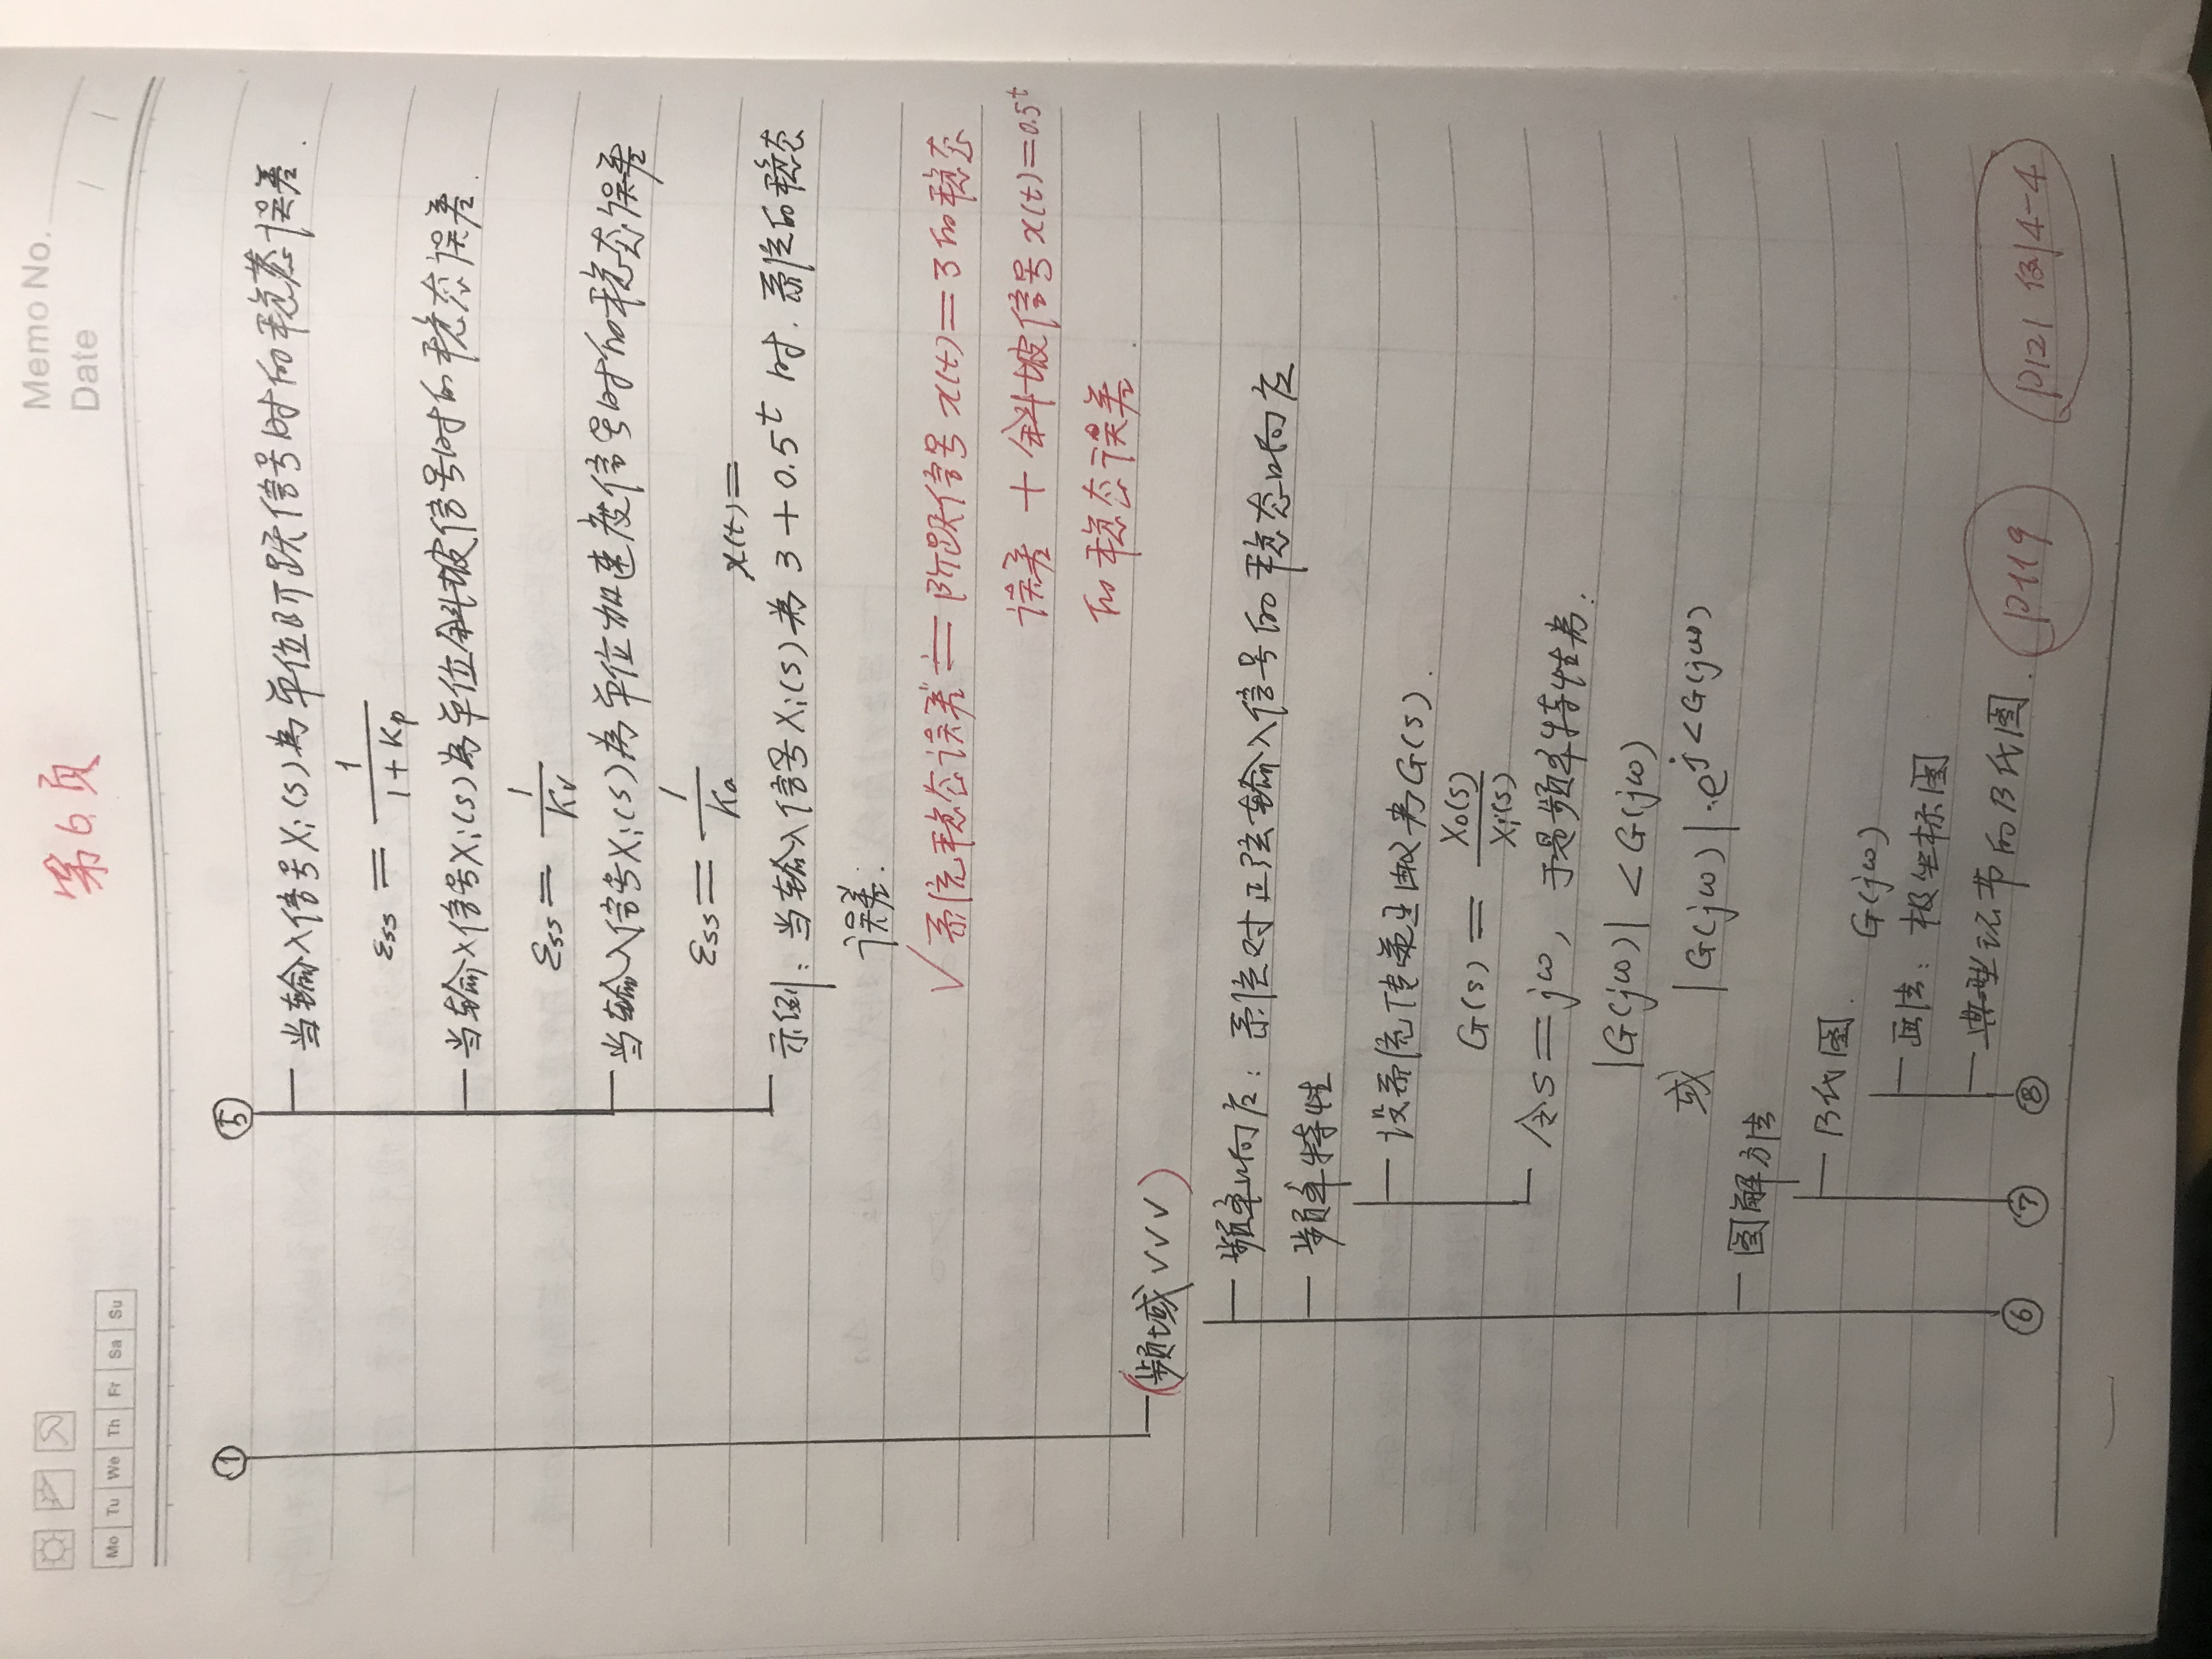 Memo No.
第6页
Date / /
Mo Tu We Th Fr Sa Su
① ⑤
当输入信号Xi(s)为单位阶跃信号时的稳态误差.
εss = 1/(1+Kp)
当输入信号Xi(s)为单位斜坡信号时的稳态误差.
εss = 1/Kv
当输入信号Xi(s)为单位加速度信号时的稳态误差
εss = 1/Ka
x(t)=
示例: 当输入信号Xi(s)为 3+0.5^t 时. 系统的稳态
误差:
√系统稳态误差 = 阶跃信号 x(t)=3 的稳态
误差 + 斜坡信号 x(t)=0.5^t
的稳态误差.
(频域 √√√)
频率响应: 系统对正弦输入信号的稳态响应
频率特性
设系统传递函数为G(s).
G(s) = Xo(s)/Xi(s)
令s=jω, 于是频率特性为:
|G(jω)| <G(jω)
或 |G(jω)|·e^j<G(jω)
图解方法
B代图.
G(jω)
画法: 极坐标图
典型环节的B代图. P119 P121 例4-4
⑥ ⑦ ⑧